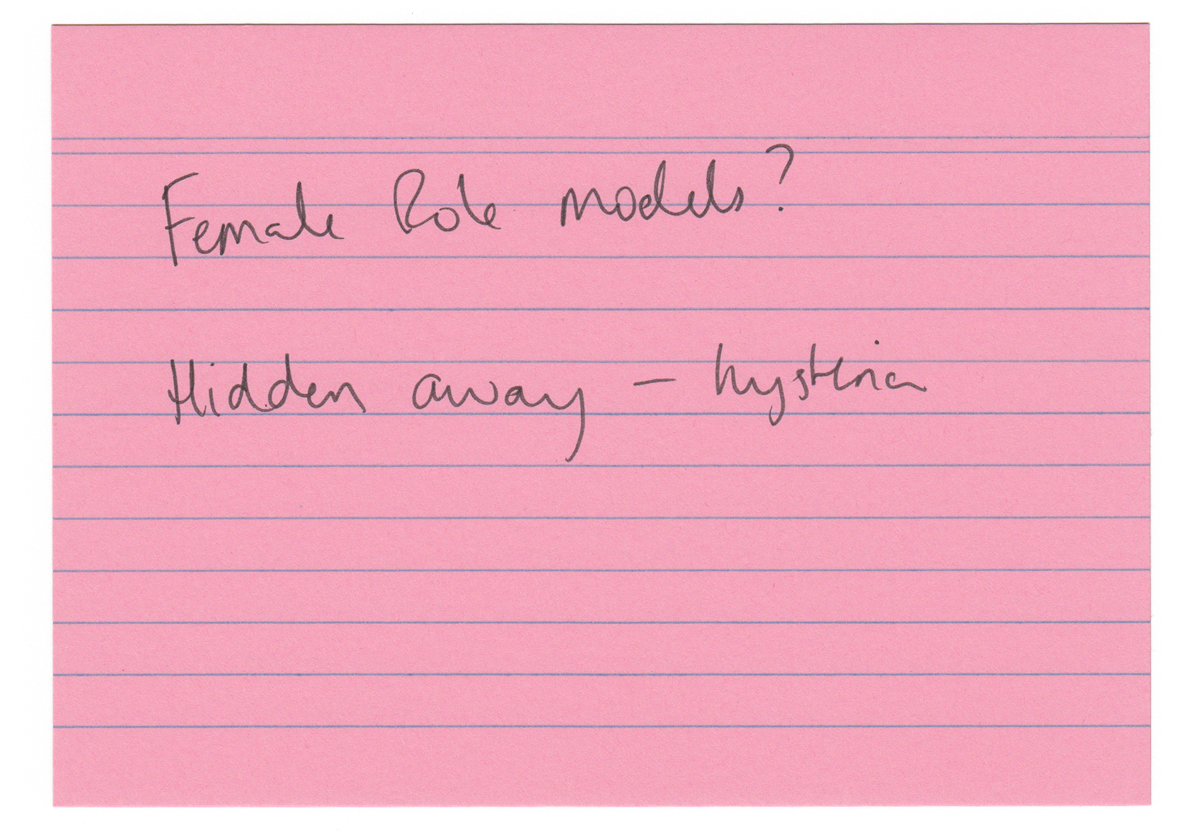 Female Role models?
Hidden away – hysteria